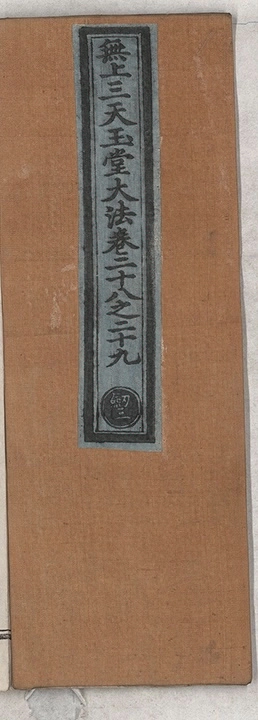 無上三天玉堂大法卷二十八之二十九